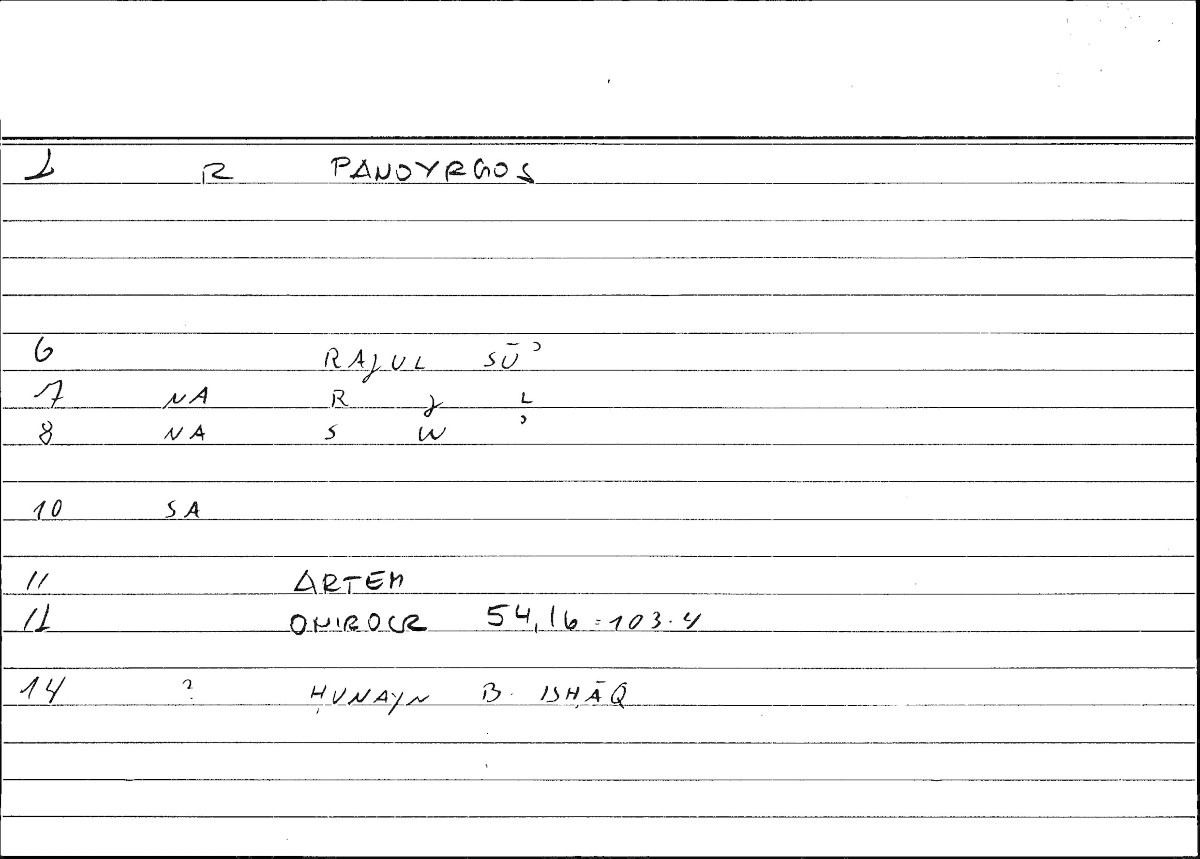 1 R PANOYRGOS
6 RAJUL SŪʾ
7 NA R J L
8 NA S W ʾ
10 SA
11 ARTEM
12 ONIROCR 54,16 = 103.4
14 ? ḤUNAYN B. ISḤĀQ